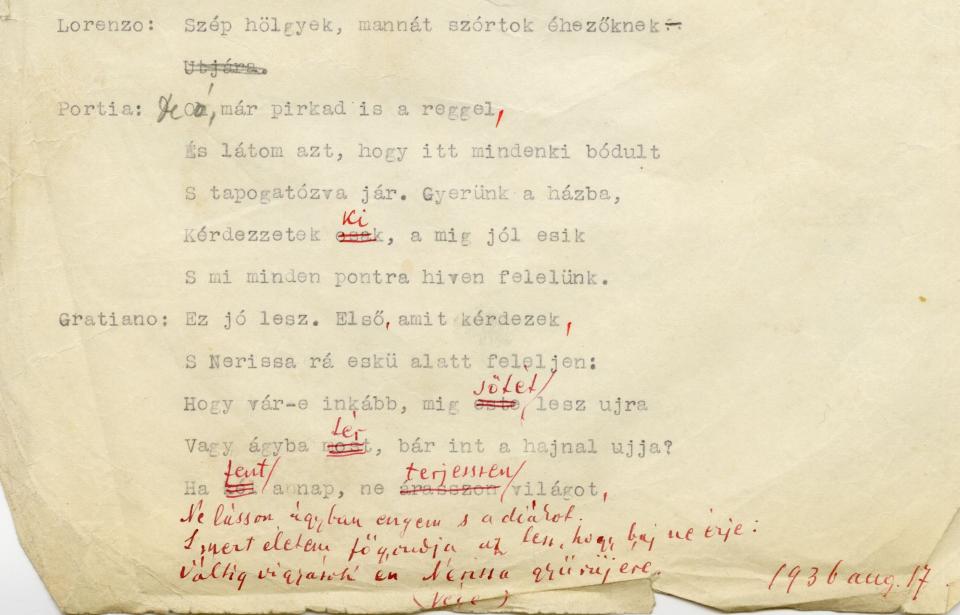 Lorenzo: Szép hölgyek, mannát szórtok éhezőknek
Utjára.
Portia: De már pirkad is a reggel,
És látom azt, hogy itt mindenki bódult
S tapogatózva jár. Gyerünk a házba,
ki
Kérdezzetek csak, a mig jól esik
S mi minden pontra hiven felelünk.
Gratiano: Ez jó lesz. Első, amit kérdezek,
S Nerissa rá eskü alatt feleljen:
sötét/
Hogy vár-e inkább, mig este lesz ujra
tér
Vagy ágyba most, bár int a hajnal ujja?
fent/ terjesszen/
Ha kél a nap, ne árasszon világot,
Ne lásson ágyban engem s a diákot.
S mert életem főgondja az lesz, hogy baj ne érje:
Váltig vigyázok én Nerissa gyűrűjére.
(Vége)
1936 aug. 17.